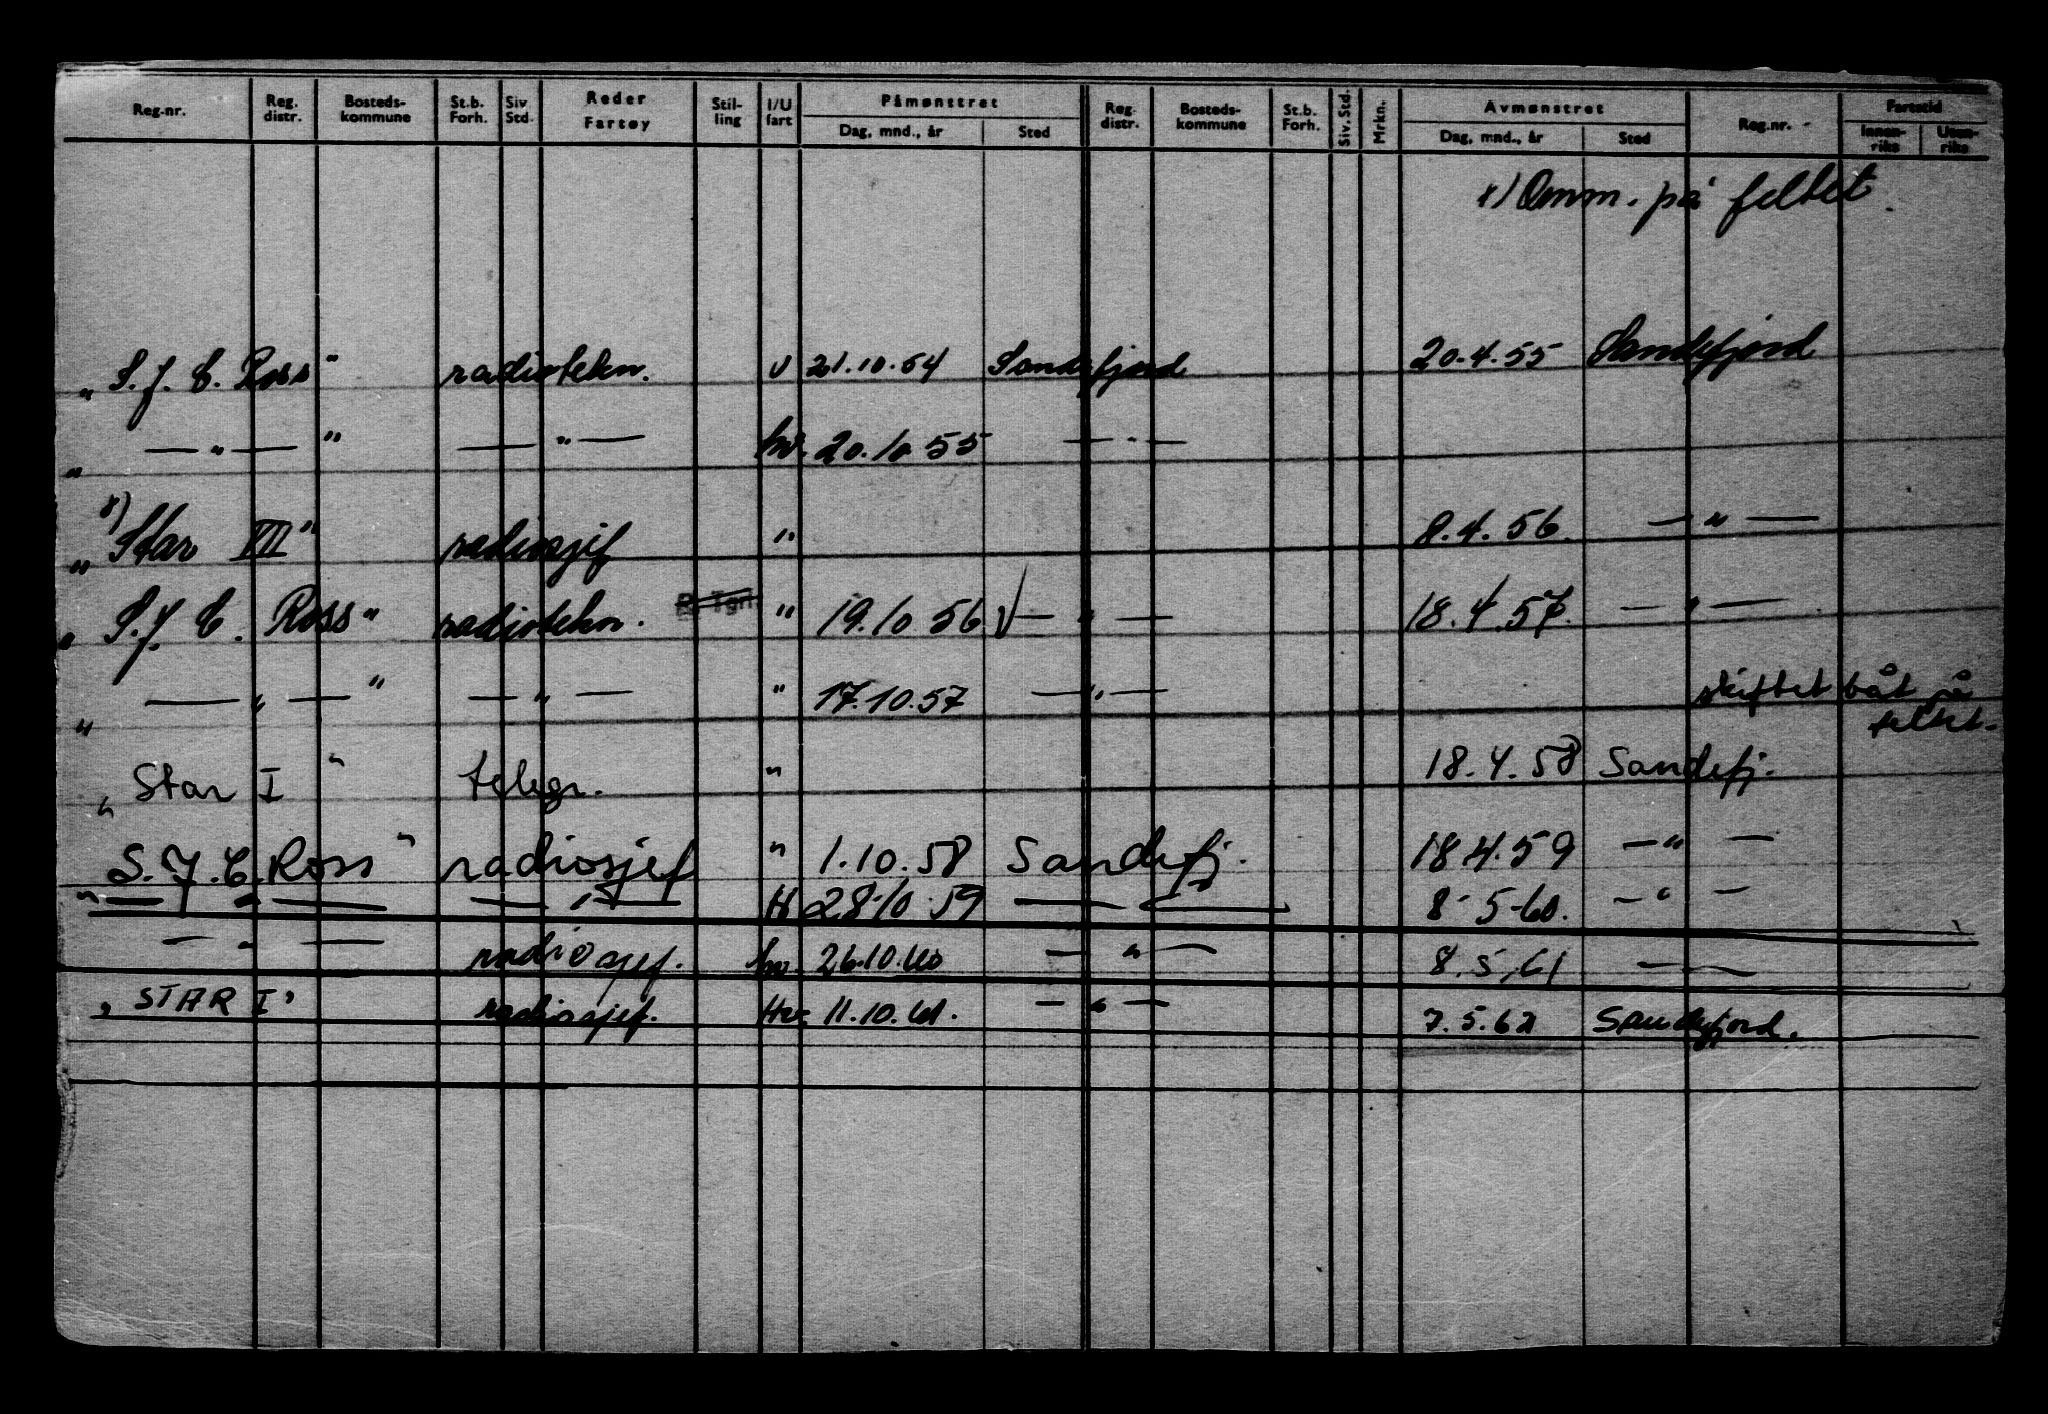 Reg.nr. Reg. distr. Bosteds-kommune St.b. Forh. Siv. Std. Reder Fartøy Stil-ling I/U fart Påmønstret Dag, mnd., år Sted Reg. distr. Bosteds-kommune St.b. Forh. Siv. Std. Mrkn. Avmønstret Dag, mnd., år Sted Reg.nr. Fartstid Innen-riks Uten-riks
x) Omm. på feltet
„ S. J. C. Ross " radiotekn. U 21.10.54 Sandefjord 20.4.55 Sandefjord
„ — „ — " — " — hv. 20.10 55 — " —
„ x) Star VII " radiosjef " 8.4.56. — „ —
„ S. J. C. Ross " radiotekn. R. Tgri. " 19.10 56 √ — " — 18.4.57. — " —
„ — „ — " — „ — " 17.10.57 — „ — skiftet båt på
feltet.
„ Star I " telegr. " 18.4.58 Sandefj.
S. J. C. Ross " radiosjef " 1.10.58 Sandefj. 18.4.59 — " —
" — " — — " — H 28-10-59 — — 8-5-60. — " —
— " — radiosjef. hv. 26.10.60 — " — 8.5.61 — —
„ STAR I " radiosjef. Hv. 11.10.61. — " — 7.5.62 Sandefjord.